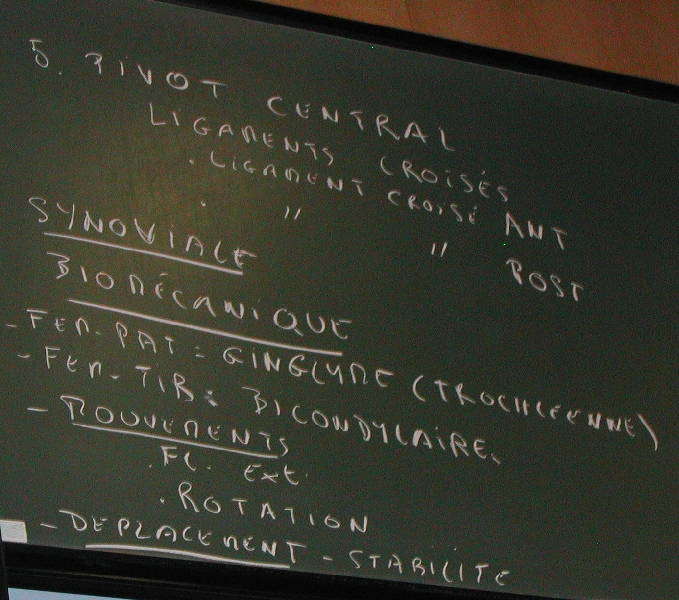 5. PIVOT CENTRAL
LIGAMENTS CROISÉS
. LIGAMENT CROISÉ ANT
. " " POST
SYNOVIALE
BIOMÉCANIQUE
- FEM. PAT = GINGLYME (TROCHLEENNE)
- FEM. TIB = BICONDYLAIRE.
- MOUVEMENTS
. FL. EXT.
. ROTATION
- DEPLACEMENT - STABILITE